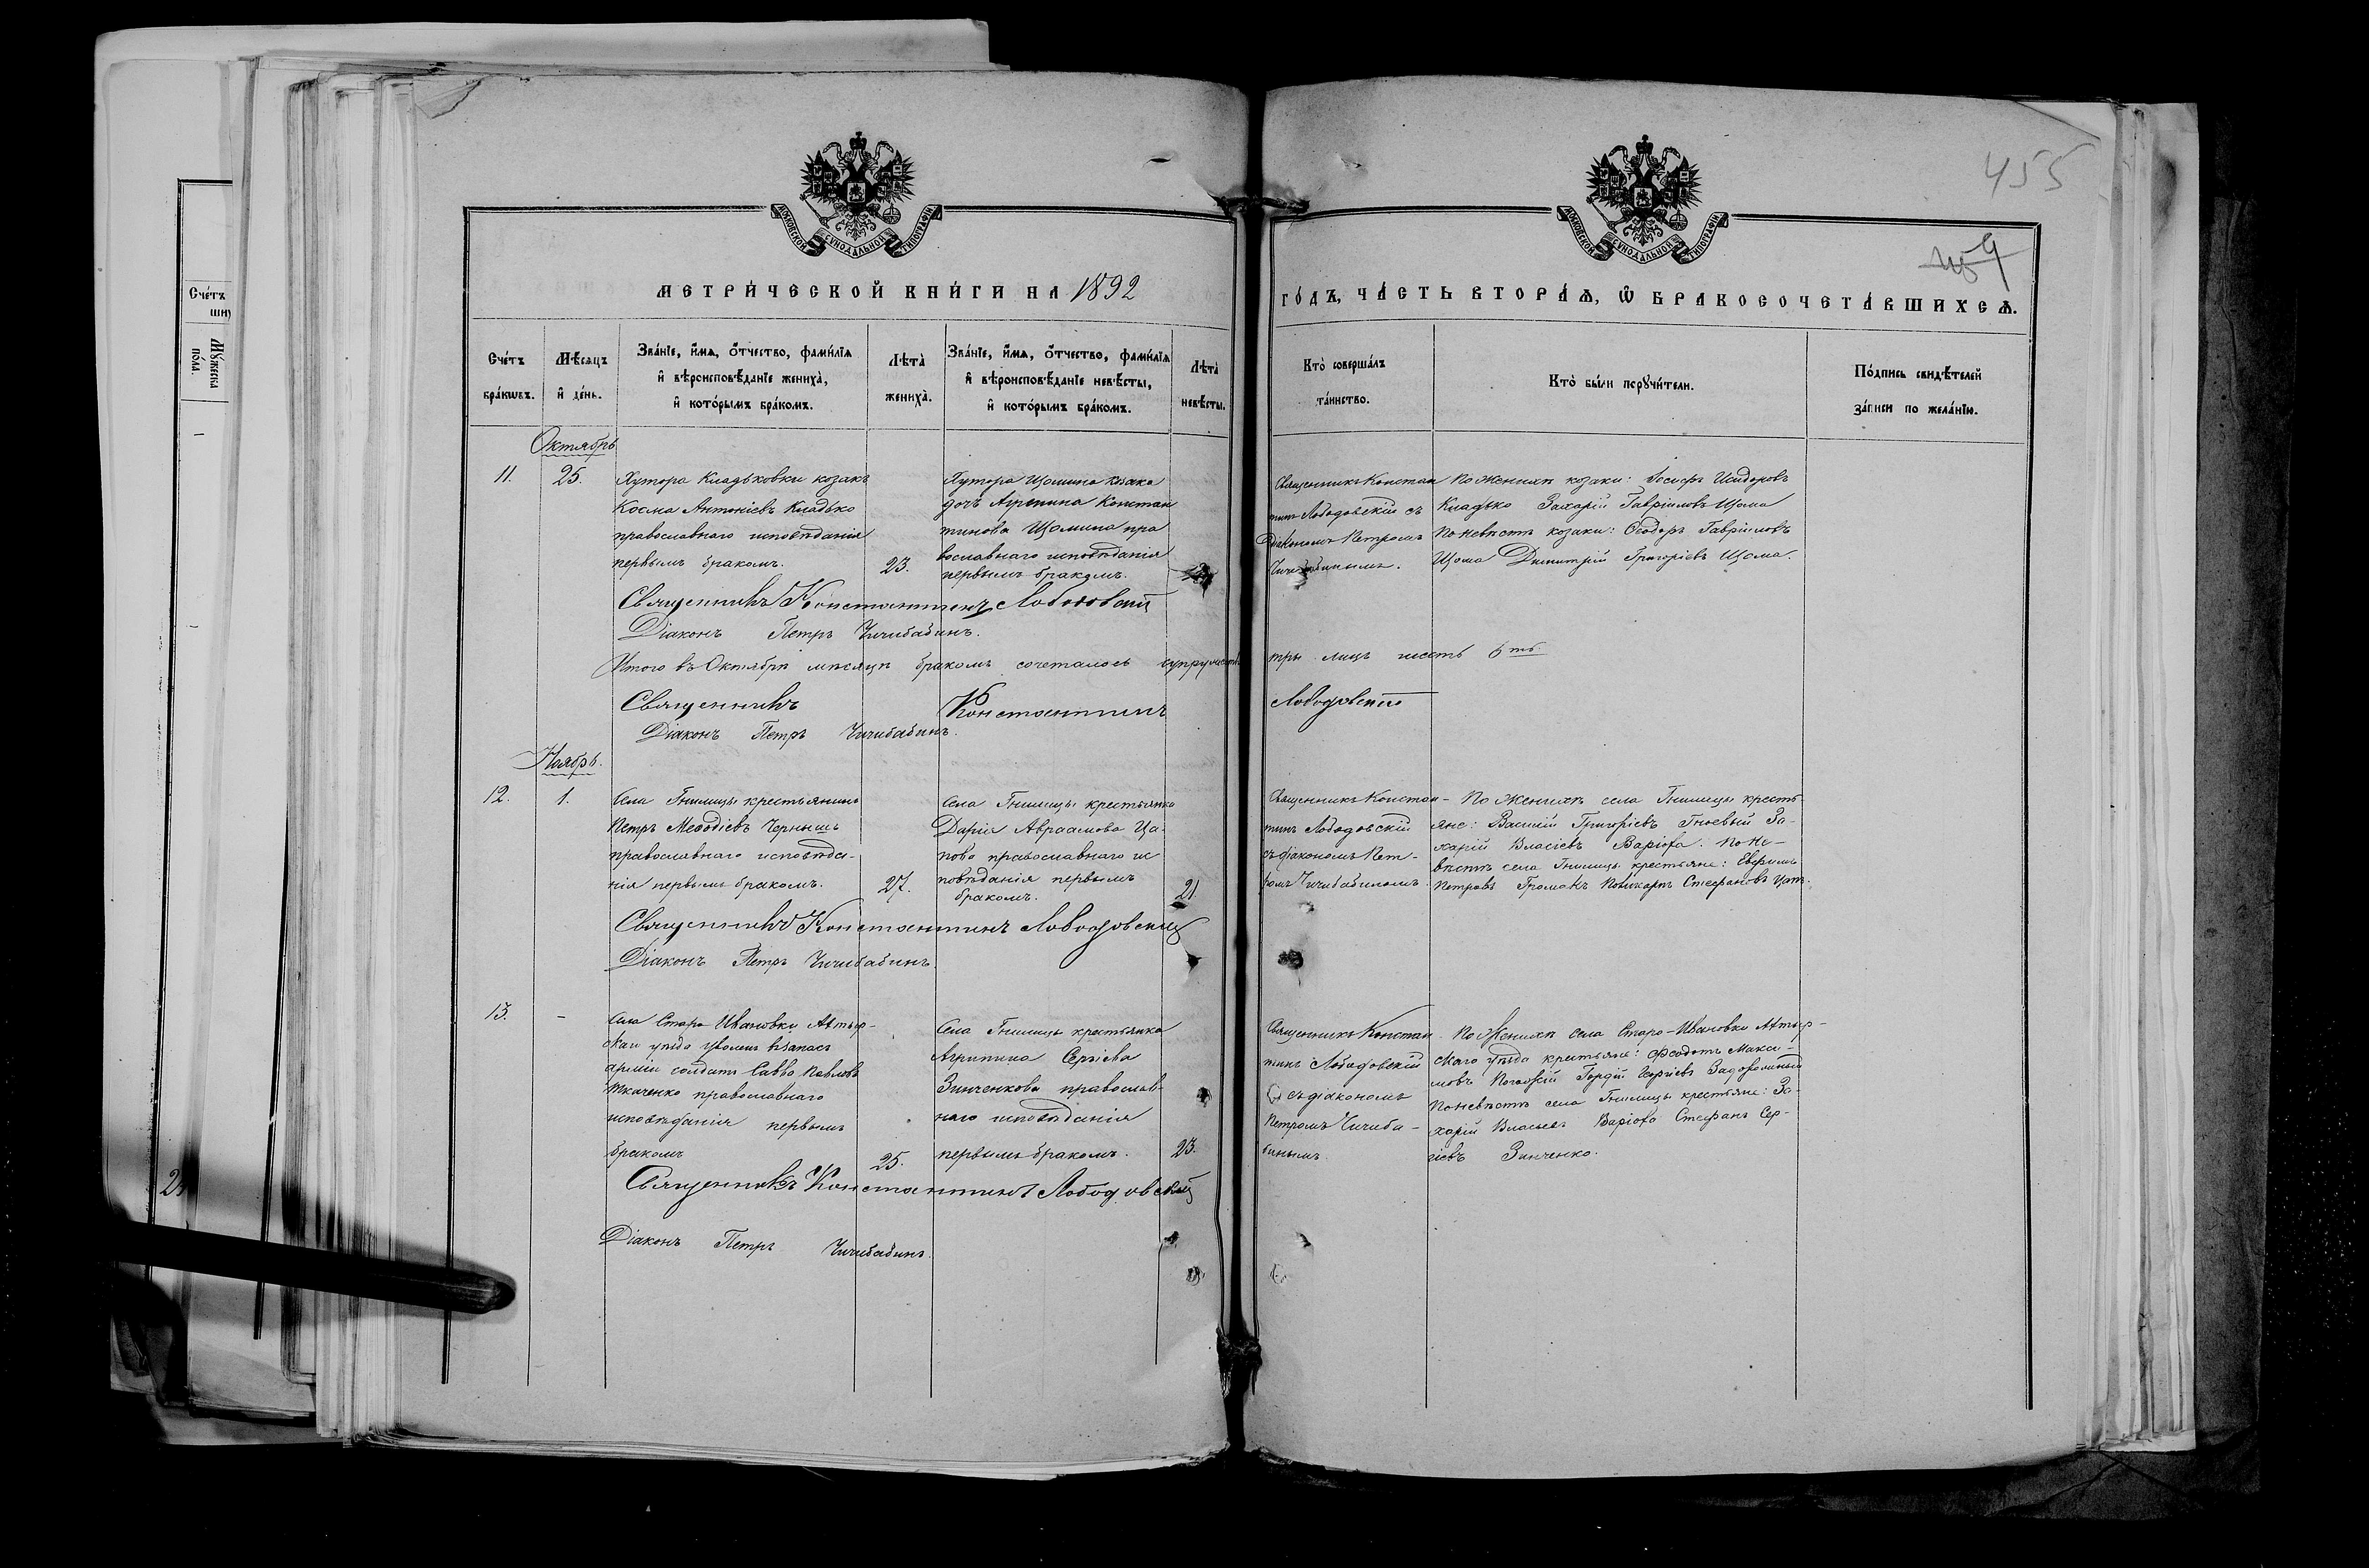 455
459
МОСКОВСКОЙ СѴНОДАЛЬНОЙ ТИПОГРАФІИ
МОСКОВСКОЙ СѴНОДАЛЬНОЙ ТИПОГРАФІИ
МЕТРИ́ЧЕСКОЙ КНИ́ГИ НА 1892
ГО́ДЪ, ЧА́СТЬ ВТОРА́Ѧ, Ѽ БРАКОСОЧЕТА́ВШИХСѦ.
Сче́тъ
бра́кѡвъ.
Мѣ́сѧцъ
и҆ де́нь.
Зва́нїе, и҆́мѧ, ѻ҆́тчество, фамилїѧ
и҆ вѣроисповѣ́данїе жениха̀,
и҆ кото́рымъ бра́комъ.
Лѣта̀
жениха̀.
Зва́нїе, и҆́мѧ, ѻ҆́тчество, фамилїѧ
и҆ вѣроисповѣ́данїе невѣ́сты,
и҆ кото́рымъ бра́комъ.
Лѣта̀
невѣ́сты.
Кто̀ соверша́лъ
та́инство.
Кто̀ бы́ли порꙋчи́тели.
По́дпись свидѣ́телей
за́писи по жела́нїю.
Октябрь
11.
25.
Хутора Кладьковки козакъ
Косма Антоніевъ Кладько
православнаго исповѣданія
первымъ бракомъ.
23.
Хутора Щомина козака
дочь Агрепина Констан
тинова Щомина пра
вославнаго исповѣданія
первымъ бракомъ.
Священникъ Констан
тинъ Лободовскій съ
Діакономъ Петромъ
Чичибабинымъ.
По женихѣ козаки: Іосифъ Исидоровъ
Кладько Захарій Гавріиловъ Щома
По невѣстѣ козаки: Ѳеодоръ Гавріиловъ
Щома Димитрій Григоріевъ Щома.
Священникъ Константинъ Лободовскій
Діаконъ Петръ Чичибабинъ.
Итого въ Октябрѣ мѣсяцѣ бракомъ сочеталось супружествъ
три лицъ шесть 6ть.
Священникъ Константинъ Лободовскій
Діаконъ Петръ Чичибабинъ.
Ноябрь.
12.
1.
Села Гнилицы крестьянинъ
Петръ Меѳодіевъ Чернышъ
православнаго исповѣда-
нія первымъ бракомъ.
27.
Села Гнилицы крестьянка
Дарія Авраамова Ца-
пова православнаго ис
повѣданія первымъ
бракомъ.
21.
Священникъ Констан-
тинъ Лободовскій
съ діакономъ Пет-
ромъ Чичибабиномъ.
По женихѣ села Гнилицы кресть-
яне: Василій Григоріевъ Гноевый За-
харій Власіевъ Варіофа: По не-
вѣстѣ села Гнилицы крестьяне: Евфимъ
Петровъ Громакъ Поликарпъ Стефановъ Цапъ.
Священникъ Константинъ Лободовскій
Діаконъ Петръ Чичибабинъ
13.
-
Села Старо Ивановки Ахтыр-
скаго уѣзда уволен. в запасъ
арміи солдатъ Савва Павловъ
Ткаченко православнаго
исповѣданія первымъ
бракомъ
25.
Села Гнилицы крестьянка
Агрипина Сергіева
Зинченкова православ-
наго исповѣданія
первымъ бракомъ.
23.
Священникъ Констан
тинъ Лободовскій
съ діакономъ
Петромъ Чичиба-
бинымъ
По женихѣ села Старо-Ивановки Ахтыр-
скаго уѣзда крестьяне: Ѳеодотъ Макси-
мовъ Гордій Георгіевъ
По невѣстѣ села Гнилицы крестьяне: За-
харій Власьевъ Варіофа Стефанъ Сер-
гіевъ Зинченко.
Священникъ Константинъ Лободовскій
Діаконъ Петръ Чичибабинъ.